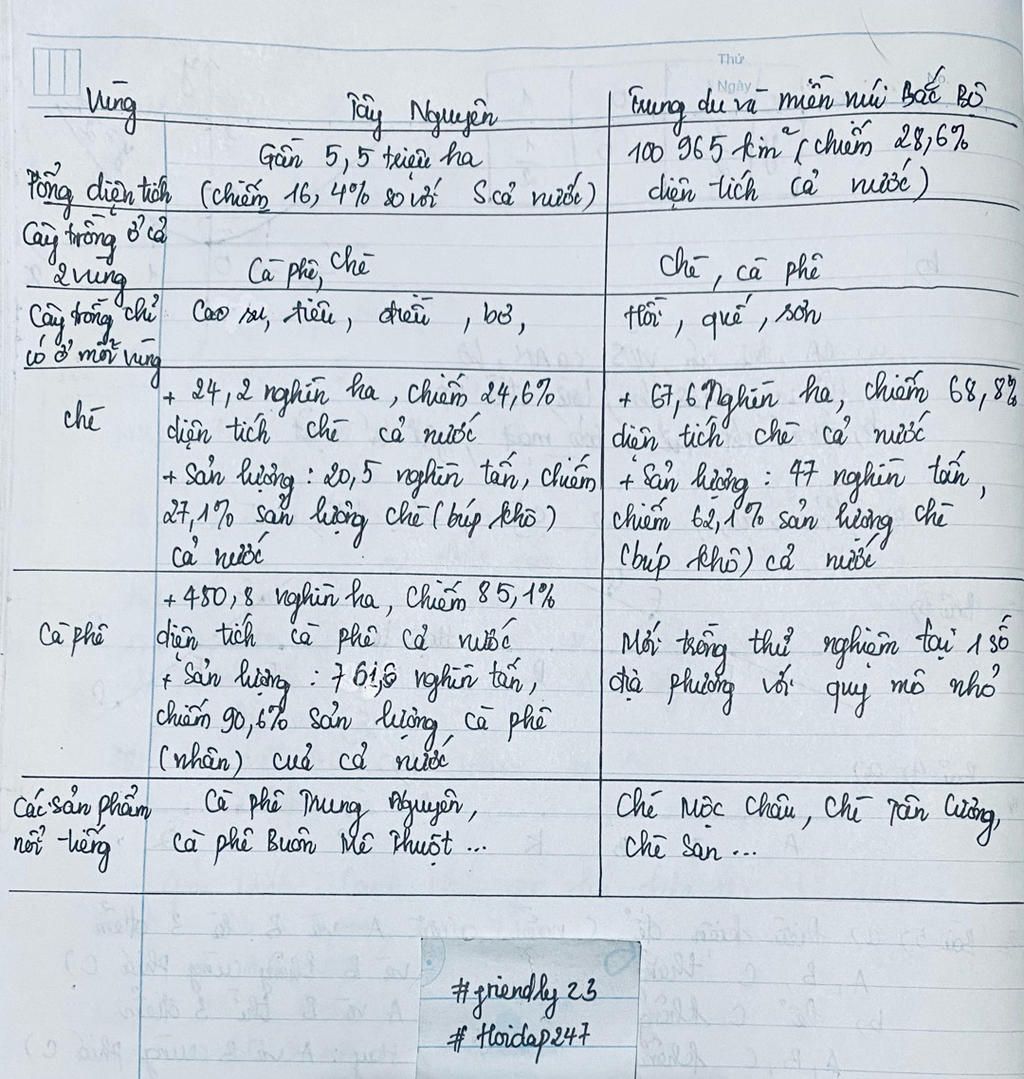 Thứ
Ngày
No.
Vùng
Tây Nguyên
Trung du và miền núi Bắc Bộ
Tổng diện tích
Gần 5,5 triệu ha
(chiếm 16,4% so với S cả nước)
100 965 km² (chiếm 28,6%
diện tích cả nước)
Cây trồng ở cả
2 vùng
Cà phê, chè
Chè, cà phê
Cây trồng chỉ
có ở mỗi vùng
Cao su, tiêu, điều, bơ,
Hồi, quế, sơn
Chè
+ 24,2 nghìn ha, chiếm 24,6%
diện tích chè cả nước
+ Sản lượng: 20,5 nghìn tấn, chiếm
27,1% sản lượng chè (búp khô)
cả nước
+ 67,6 nghìn ha, chiếm 68,8%
diện tích chè cả nước
+ Sản lượng: 47 nghìn tấn,
chiếm 62,1% sản lượng chè
(búp khô) cả nước
Cà phê
+ 480,8 nghìn ha, chiếm 85,1%
diện tích cà phê cả nước
+ Sản lượng: 761,6 nghìn tấn,
chiếm 90,6% sản lượng cà phê
(nhân) của cả nước
Mới trồng thử nghiệm tại 1 số
địa phương với quy mô nhỏ
Các sản phẩm
nổi tiếng
Cà phê Trung Nguyên,
Cà phê Buôn Mê Thuột ...
Chè Mộc Châu, Chè Tân Cương,
Chè San ...
#friendly23
#Hoidap247